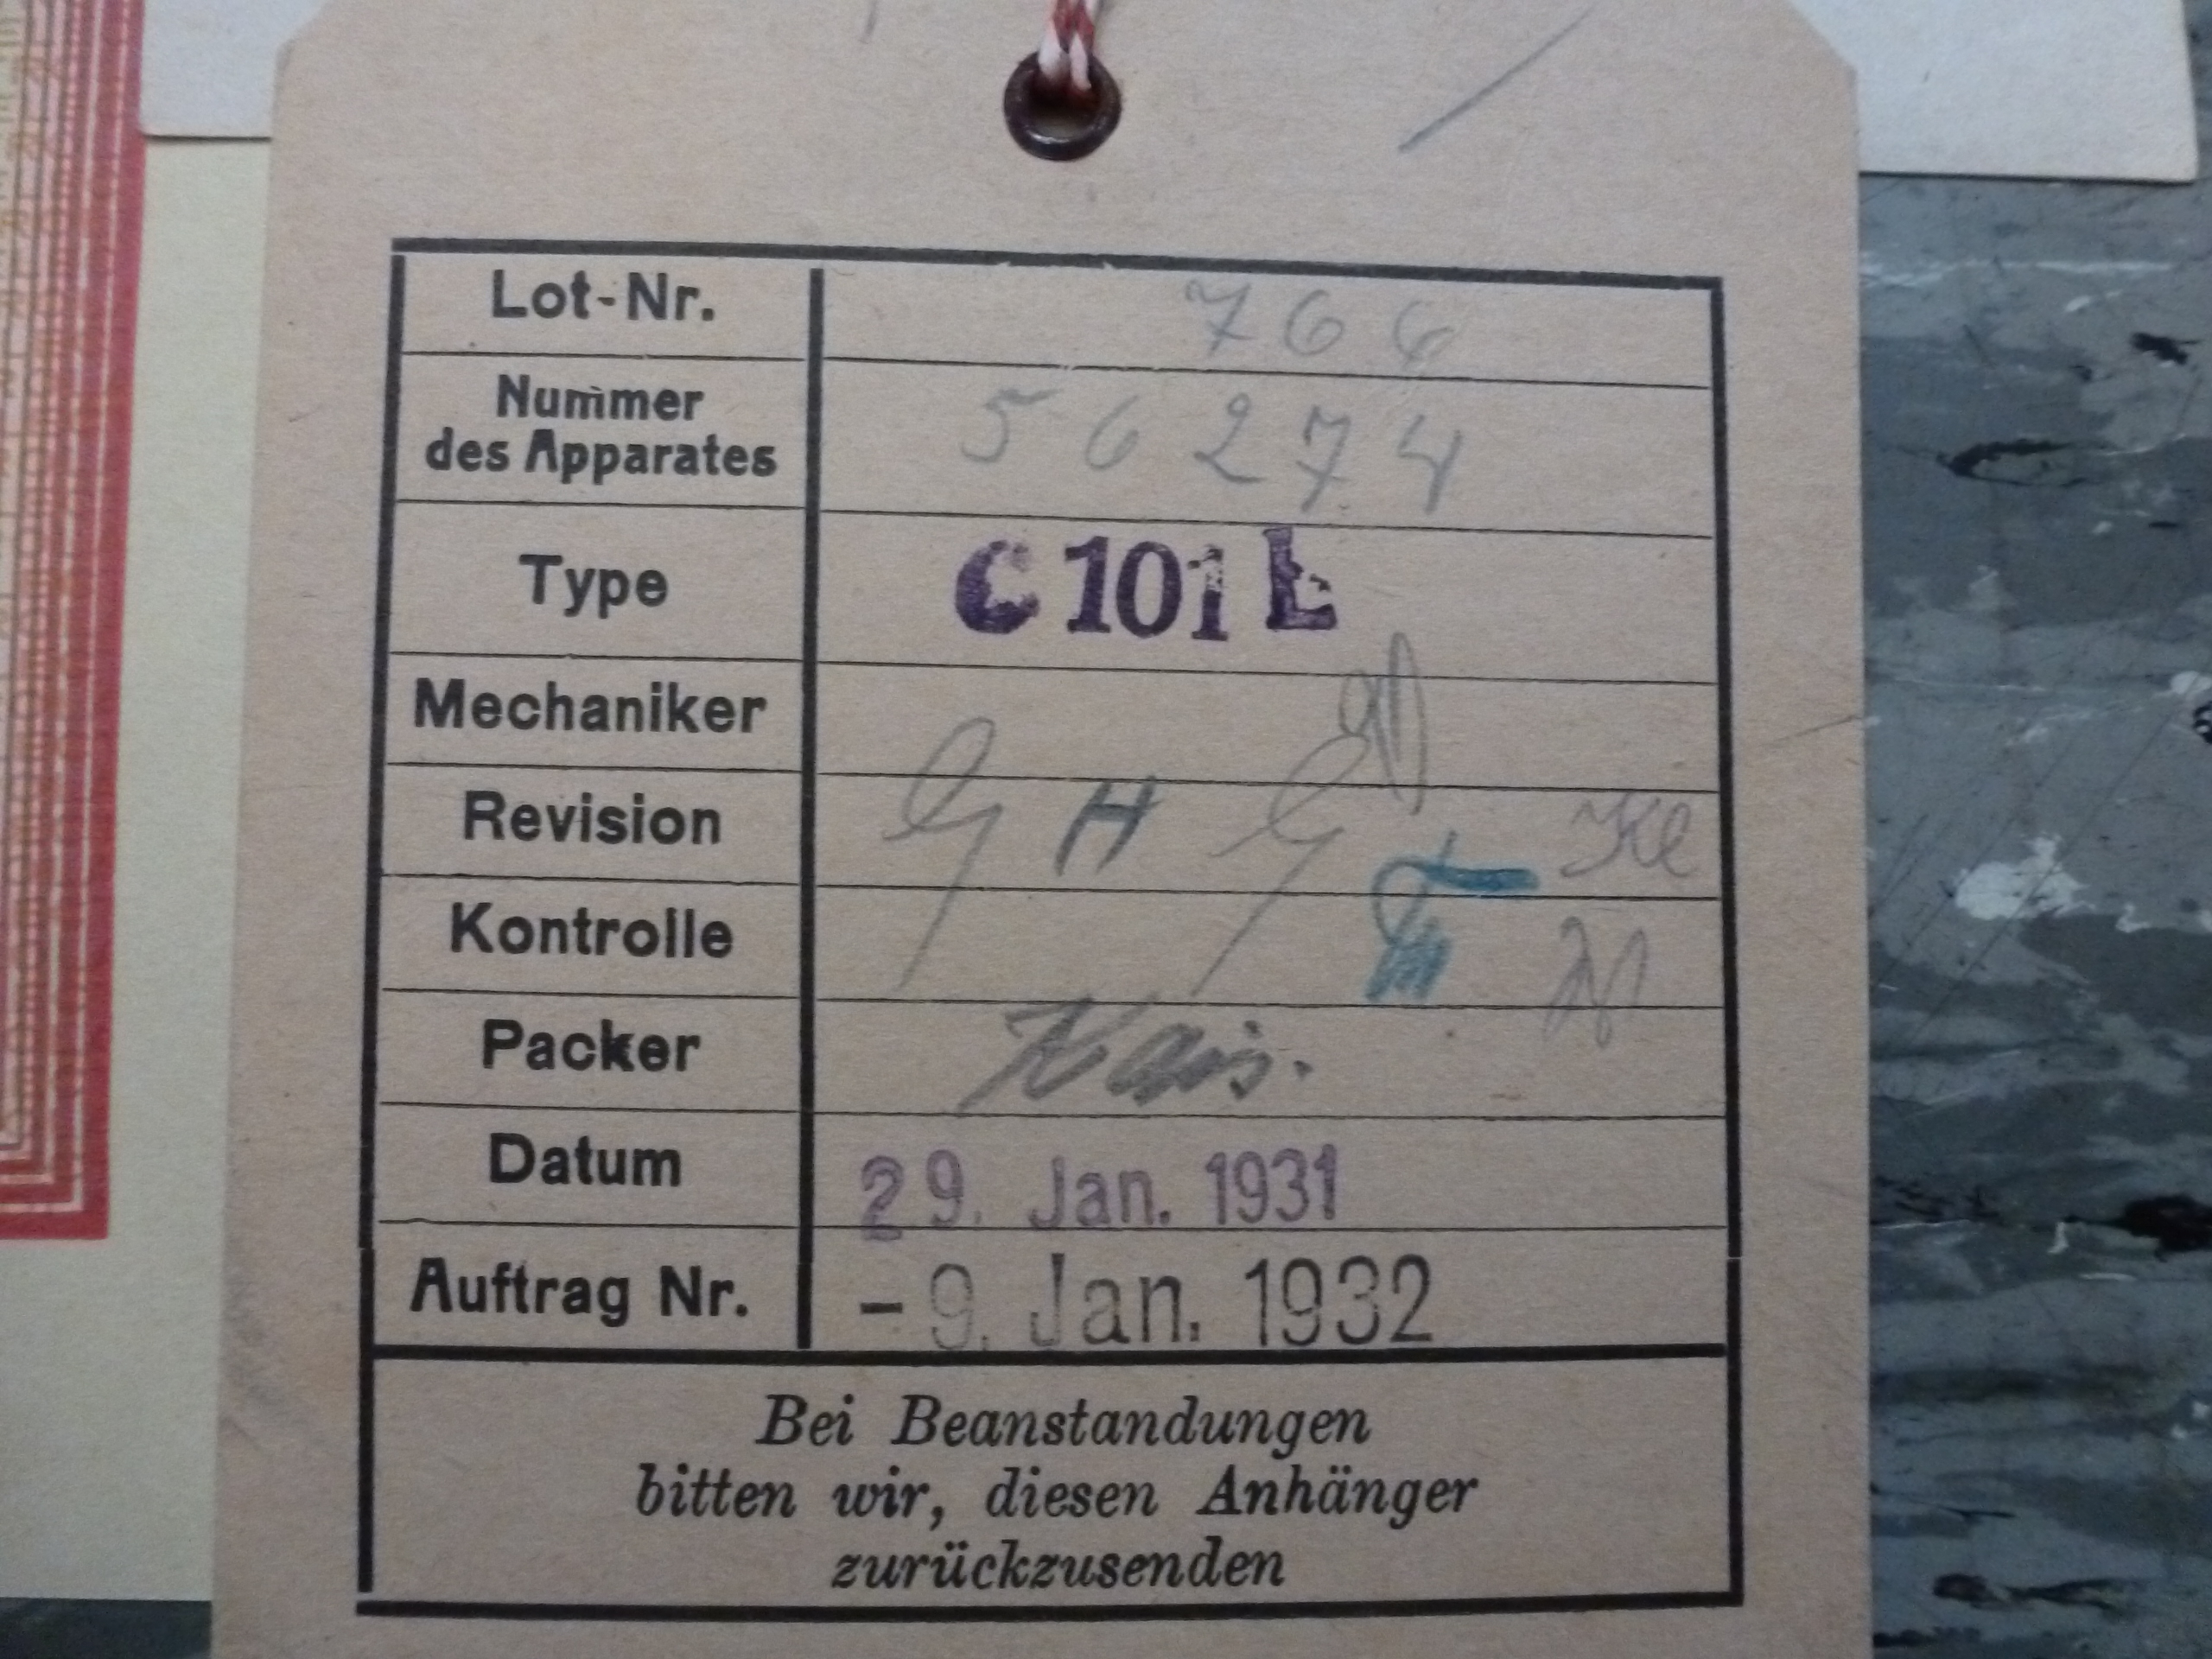 Lot-Nr. 766
Nummer
des Apparates 56274
Type C 101 L
Mechaniker
Revision H
Kontrolle
Packer
Datum 29. Jan. 1931
Auftrag Nr. -9. Jan. 1932
Bei Beanstandungen
bitten wir, diesen Anhänger
zurückzusenden